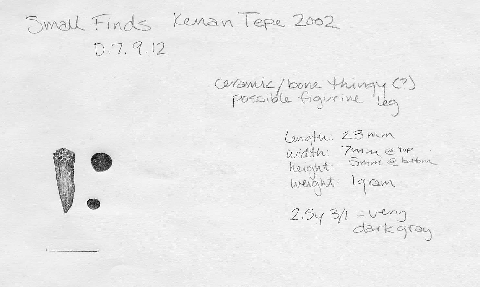 Small Finds Kenan Tepe 2002
D.7.9.12
ceramic/bone thingy (?)
possible figurine leg
length: 23 mm
width: 7mm @ top
height: 5mm @ bottom
weight: 1 gram
2.5y 3/1 = very
dark gray